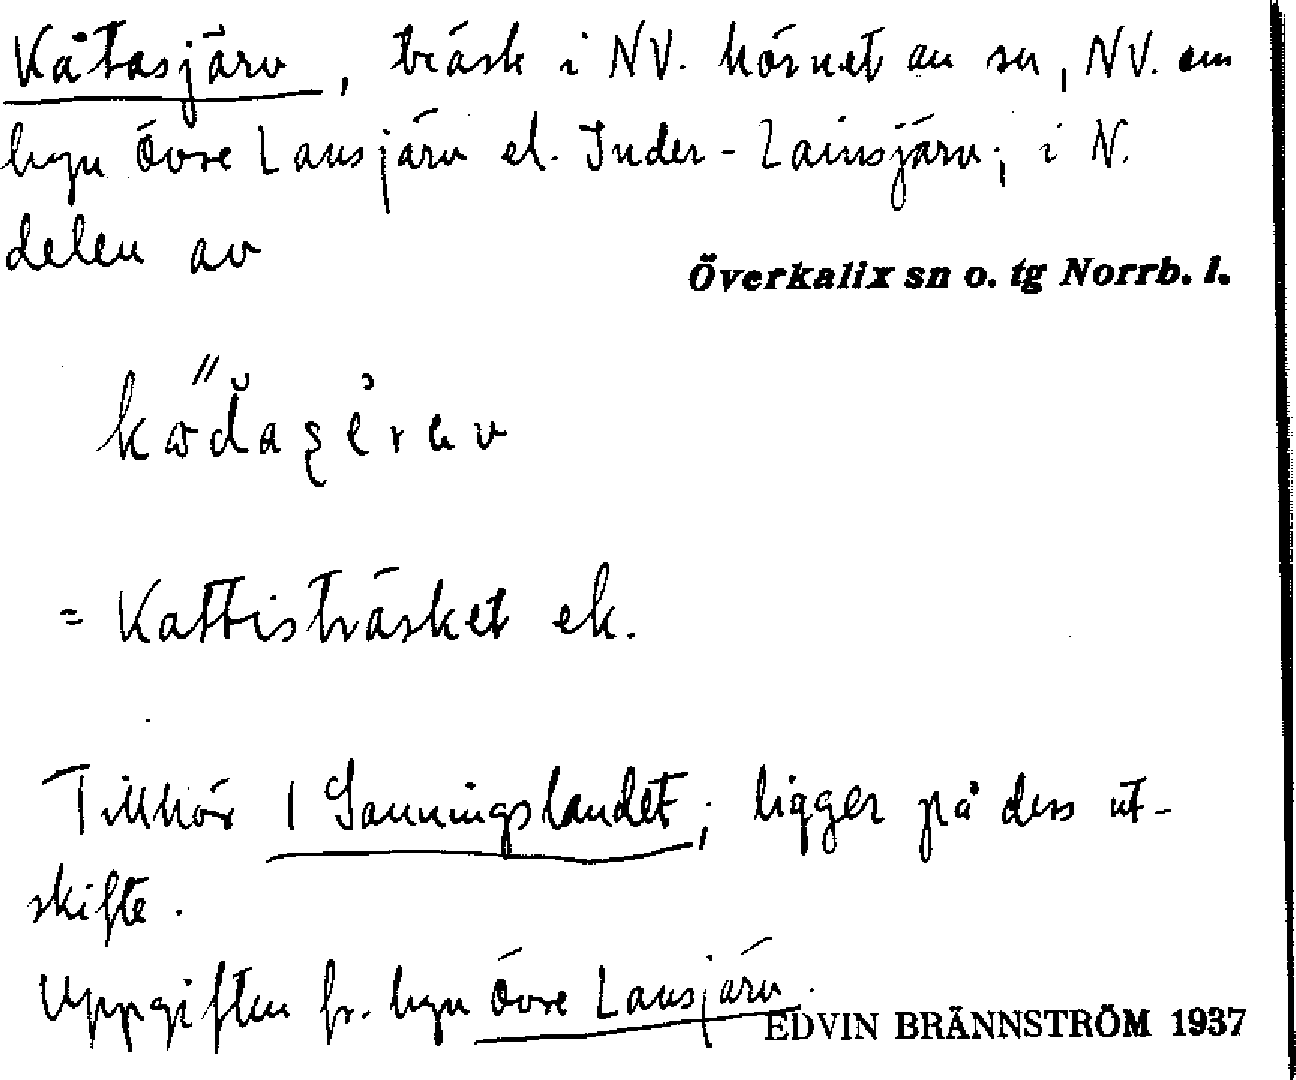 Kåtasjärv, träsk i NV. hörnet av sn, NV. om
byn Övre Lansjärv el. Inder-Lainsjärv; i N.
delen av
Överkalix sn o. tg Norrb. l.
= Kattisträsket ek.
Tillhör 1 Sanningslandet; ligger på dess ut-
skifte.
Uppgiften fr. byn Övre Lansjärv.
EDVIN BRÄNNSTRÖM 1937